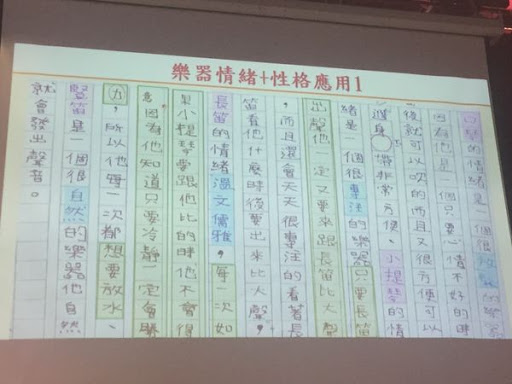 樂器情緒+性格應用1
口琴的情緒是一個很
因為他是一個只要心情不好的時
後就可以吹的而且又很方便可以
隨身帶非常方便。小提琴的情
緒是一個很專注的樂器只要長笛
出聲他一定又要來跟長笛比大聲
，而且還會天天很專注的看著長
笛看他什麼時後要出來比大聲。
長笛的情緒溫文儒雅，每一次如
果小提琴要跟他比的時他不會得
意因為他知道只要冷靜一定會勝
力，所以他每一次都想要放水、
豎笛是一個很自然的樂器他自然
就會發出聲音。